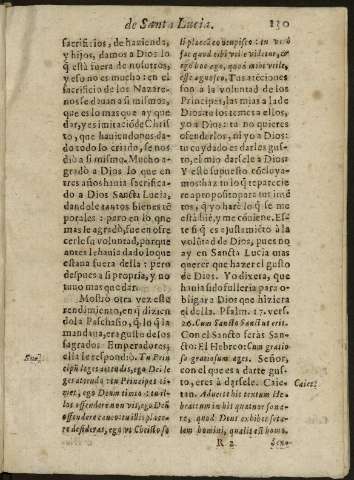 de Santa Lucia. 130
sacrificios, de hazienda,
y hijos, damos a Dios lo
q̃ està fuera de nosotros,
y esso no es mucho: en el
sacrificio de los Nazare-
nos se dauan a si mismos,
que es lo mas que ay que
dar, y es imitació de Chris
to, que hauiendonos da-
do todo lo criado, se nos
diò a si mismo. Mucho a-
gradò a Dios lo que en
tres años hauia sacrifica-
do a Dios Sancta Lucia,
dandole tantos bienes té
porales: pero en lo que
mas le agradò, fue en ofre
cerle su voluntad, porque
antes le hauia dado lo que
estaua fuera della: pero
despues a si propria, y no
tuuo mas que dar.
Mostrò otra vez este
rendimiento, en q̃ dizien
dola Paschasio, q̃ lo q̃ la
mandaua, era gusto de los
sagrados Emperadores,
ella le respondiò. Tu Prin
cipũ leges attendis, ego Dei le
ges attendo: tu Principes ti-
mes, ego Deum timeo: tu il-
los offendere non vis, ego Deũ
offendere caueo: tu illis place-
re desideras, ego vt Christo so
li placeã concupisco: tu
fac quod tibi vtile videtur, &
ego hoc ago, quod mihi vtile,
esse agnosco. Tus atenciones
son a la voluntad de los
Principes, las mias a la de
Dios: tu los temes a ellos,
yo a Dios: tu no quieres
ofenderlos, ni yo a Dios:
tu cuydado es darles gus-
to, el mio darsele a Dios:
Y este supuesto có cluya-
mos: haz tu lo q̃ te pareciere
a proposito para tu inté
to, q̃ yo haré lo q̃ se me
está bié, y me cóuiene. Es-
te si q̃ es ajustamiéto à la
volũtad de Dios, pues no
ay en Sancta Lucia mas
querer que hazer el gusto
de Dios. Yo dixera, que
hauia sido fulleria para o-
bligar a Dios que hiziera
el della. Psalm. 17. vers.
26. Cum Sancto Sanctus eris.
Con el Sancto seràs San-
cto: El Hebreo: Cum gratio-
so gratiosum ages. Señor,
con el que es a darte gus-
to, eres à darsele. Caie-
tan. Aduerte hic tentum He-
braicum in hit quatuor sona-
re, quod Deus exhibet se ta-
lem homini, qualis est homo.
Caiet.
R 2